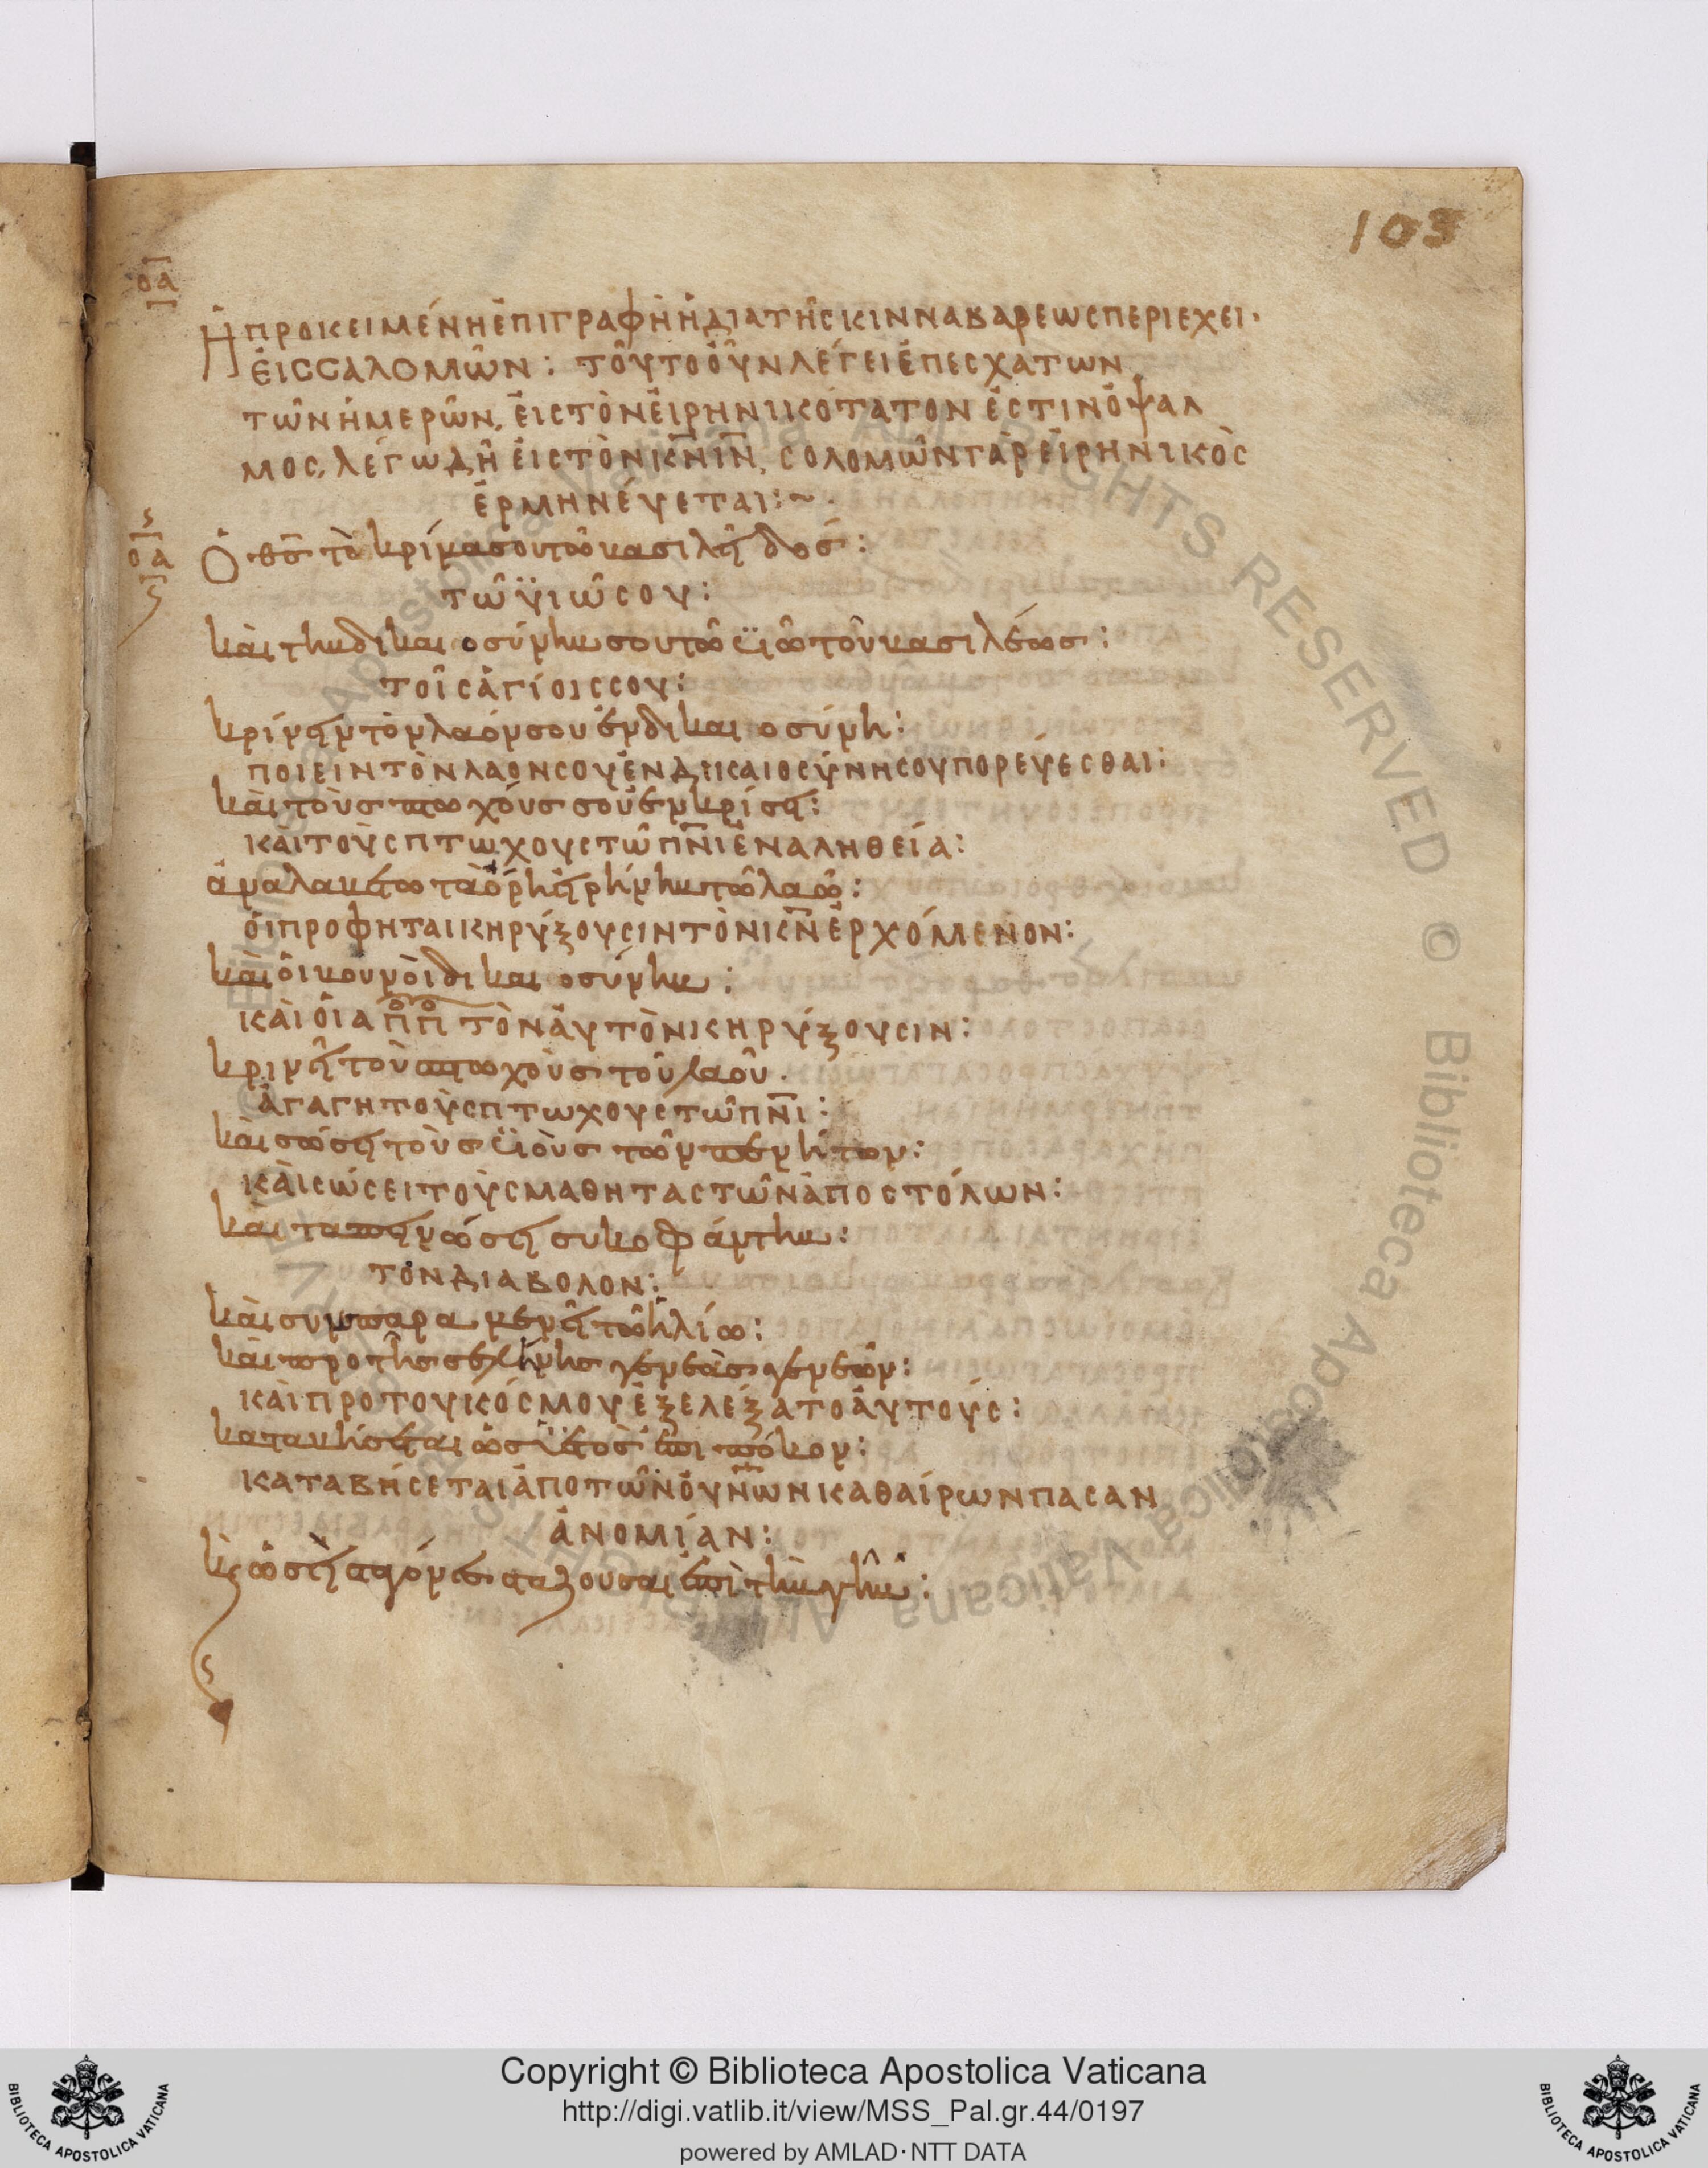 103
οα
Ἡ ΠΡΟΚΕΙΜΕΝΗ ἘΠΙΓΡΑΦῊ Ἡ ΔΙΑ ΤΗ͂Σ ΚΙΝΝΑΒΑΡΕΩΣ ΠΕΡΙΕΧΕΙ·
ἘΙΣ ΣΑΛΟΜΩ͂Ν : ΤΟΥ͂ΤΟ ΟΥ̓͂Ν ΛΕΓΕΙ ἘΠ ΕΣΧΑΤΩΝ
ΤΩ͂Ν ἩΜΕΡΩ͂Ν, ἘΙΣ ΤῸΝ ἘΙΡΗΝΙΚΟΤΑΤΟΝ ἘΣΤΙΝ Ὁ ΨΑΛ
ΜΟΣ, ΛΕΓΩ ΔῊ ἘΙΣ ΤῸΝ Κ̅Ν̅ Ι̅Ν̅, ΣΟΛΟΜΩ͂Ν ΓᾺΡ ἘΙΡΗΝΙΚῸΣ
ἙΡΜΗΝΕΎΕΤΑΙ :~
οα Ὁ θσ̅ τὸ κρίμα σου τῶ βασιλεῖ δός :
ΤΩ͂ ΥΪΩ͂ ΣΟΥ :
κὰι την δικαιοσύνην σου τῶ ϋἱῶ τοῦ βασιλέωσ :
ΤΟΙ͂Σ ἉΓΊΟΙΣ ΣΟΥ :
κρίνειν τὸν λαόν σου ἐν δικαιοσύνη :
ΠΟΙΕΙΝ ΤῸΝ ΛΑΟΝ ΣΟΥ ἘΝ ΔΙΚΑΙΟΣΎΝΗ ΣΟΥ ΠΟΡΕΎΕΣΘΑΙ :
κὰι τοὺσ πτωχόυσ σου ἐν κρίσει :
ΚΑῚ ΤΟῪΣ ΠΤΩΧΟΥΣ ΤΩ͂ Π̅Ν̅Ι̅ ἘΝ ΑΛΗΘΕΊΑ :
ἀναλαβέτω τὰ ὄρη εἰρήνην τῶ λαῶ :
ὉΙ ΠΡΟΦΗΤΑΙ ΚΗΡΎΞΟΥΣΙΝ ΤῸΝ Κ̅Ν̅ ἘΡΧΌΜΕΝΟΝ :
κὰι ὁι βουνὸι δικαιοσύνην :
ΚᾺΙ ὉΙ ΑΠΠ ΤῸΝ ἈΥΤῸΝ ΚΗΡΎΞΟΥΣΙΝ :
κρινεῖ τοὺ πτωχὸυσ τοῦ λαοῦ .
ἈΓΑΓΗ ΤΟῪΣ ΠΤΩΧΟΥΣ ΤΩ͂ Π̅Ν̅Ι̅ :
κὰι σώσει τοὺσ ϋἱὸυσ τῶν πενήτων :
ΚᾺΙ ΣΏΣΕΙ ΤΟῪΣ ΜΑΘΗΤΑΣ ΤΩ͂Ν ἈΠΟΣΤΌΛΩΝ :
κὰι ταπεινώσει συκοφάντην :
ΤΟΝ ΔΙΑΒΟΛΟΝ :
κὰι συμπαραμενεῖ τῶ ἡλίω :
κὰι προ τῆσ σελήνησ γενεὰσ γενεῶν :
ΚᾺΙ ΠΡΟ ΤΟΥ ΚΌΣΜΟΥ ἘΞΕΛΕΞΑΤΟ ἈΥΤΟΎΣ :
καταβήσεται ὡσ ϋετὸσ ἐπι πόκον :
ΚΑΤΑΒΉΣΕΤΑΙ ἈΠΟ ΤΩ͂Ν ΟΥ̓Ν̅ΩΝ ΚΑΘΑΊΡΩΝ ΠΑΣΑΝ
ἈΝΟΜΊΑΝ :
κ̀ ὡσεὶ σταγόνεσ σταζουσαι ἐπὶ τὴν γῆν :
Copyright © Biblioteca Apostolica Vaticana
http://digi.vatlib.it/view/MSS_Pal.gr.44/0197
powered by AMLAD·NTT DATA
BIBLIOTECA APOSTOLICA VATICANA
BIBLIOTECA APOSTOLICA VATICANA